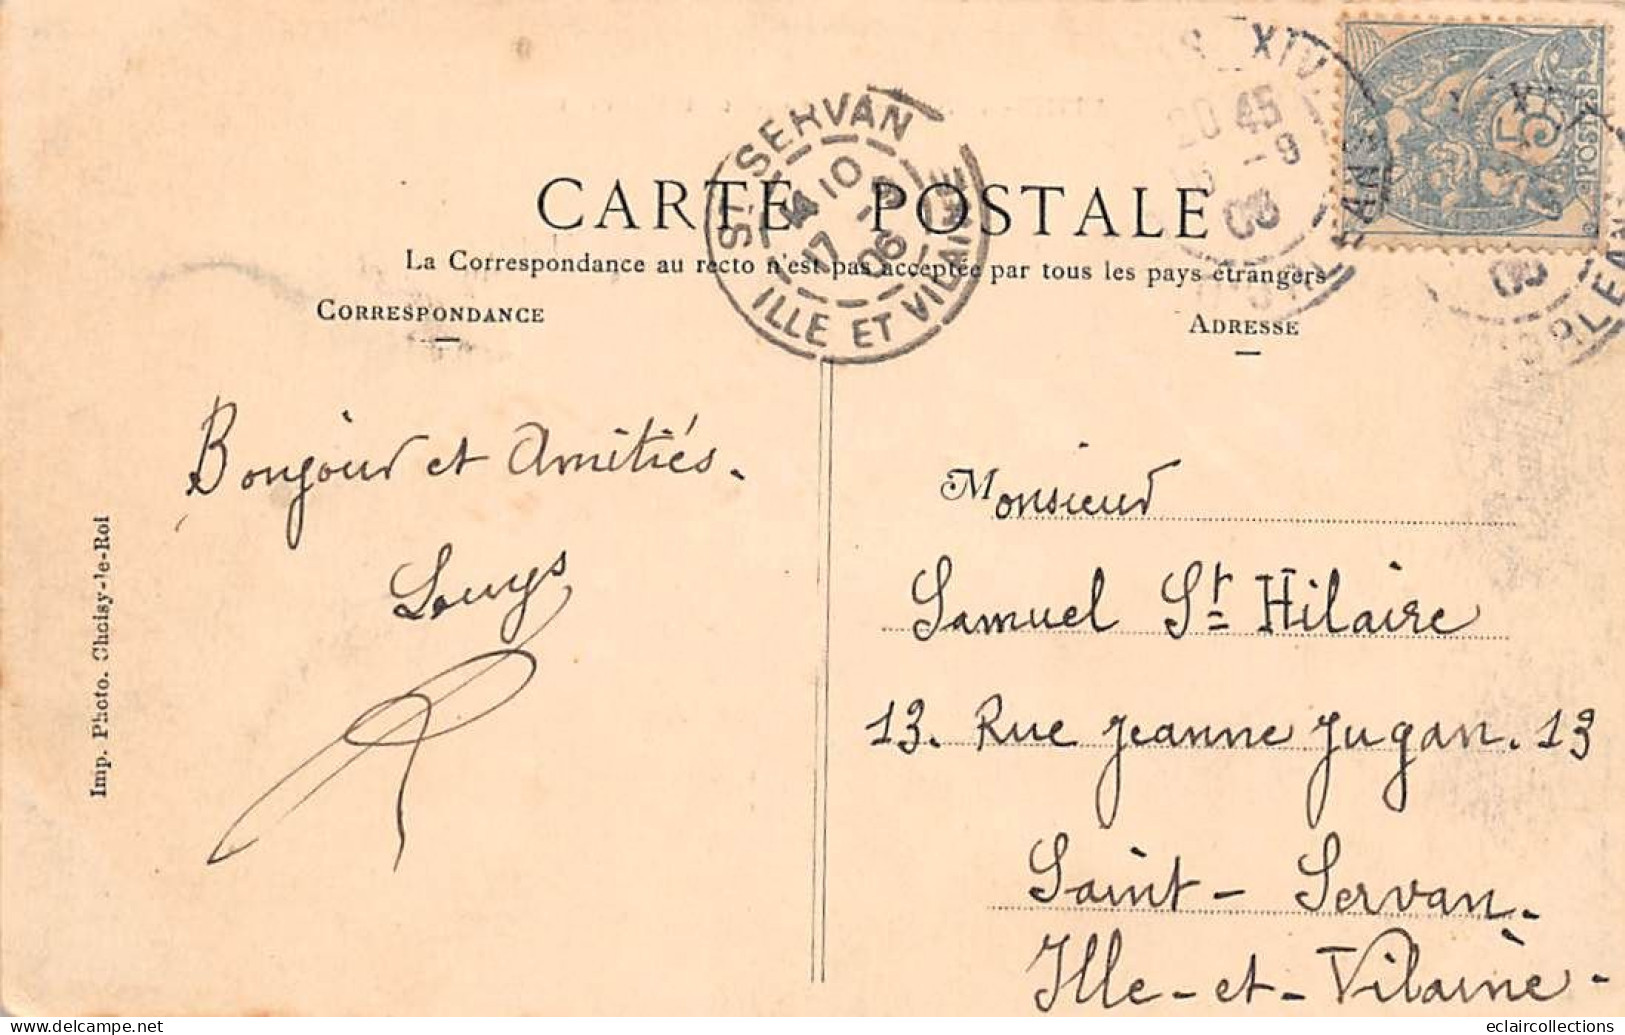 CARTE POSTALE
La Correspondance au recto n'est pas acceptée par tous les pays étrangers
CORRESPONDANCE
ADRESSE
ST SERVAN
10
17 - 9
06
ILLE ET VILAINE
XIV
20 45
- 9
5
POSTES
Bonjour et Amitiés.
Louys
Monsieur
Samuel St Hilaire
13. Rue Jeanne Jugan. 13
Saint - Servan.
Ille - et - Vilaine -
Imp. Photo. Choisy-le-Roi
eclaircollections